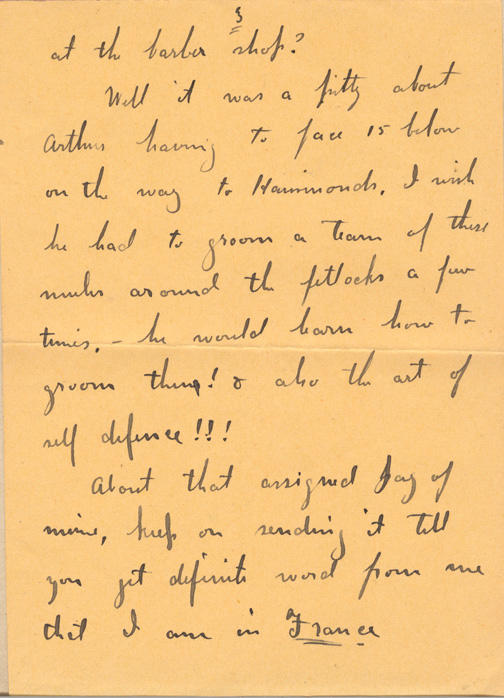 3
at the barber shop?
Well it was a pitty about
Arthur having to face 15 below
on the way to Hammonds. I wish
he had to groom a team of these
mules around the fetlocks a few
times, - he would learn how to
groom them! & also the art of
self defence!!!
About that assigned pay of
mine, keep on sending it till
you get definite word from me
that I am in France